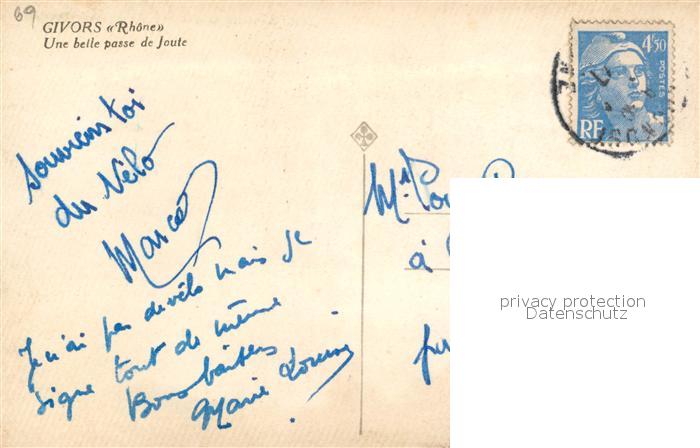 69
GIVORS «Rhône»
Une belle passe de Joute
4f50
POSTES
RF
Souviens toi
du Vélo
Marcel
Je n'ai pas de vélo mais je
signe tout de même
Bons baisers
Marie Louise
Mr
à
privacy protection
Datenschutz